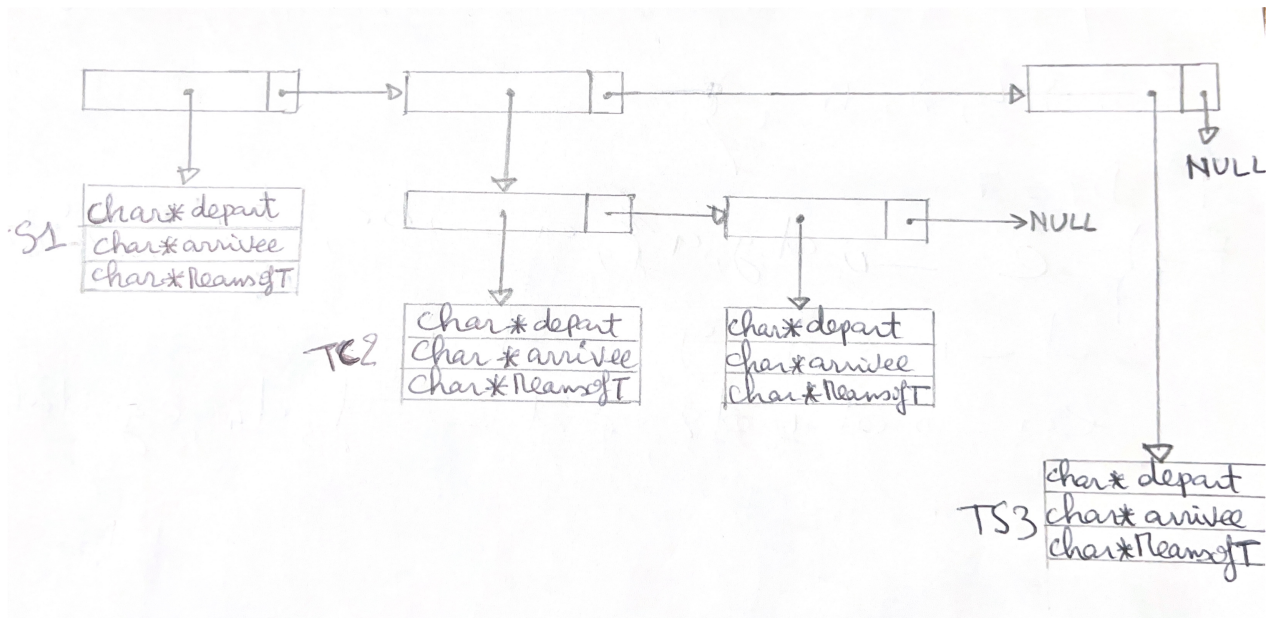 NULL
S1
char* depart
char* arrivee
char* MeansofT
NULL
TC2
char* depart
char* arrivee
char* MeansofT
char* depart
char* arrivee
char* MeansofT
TS3
char* depart
char* arrivee
char* MeansofT